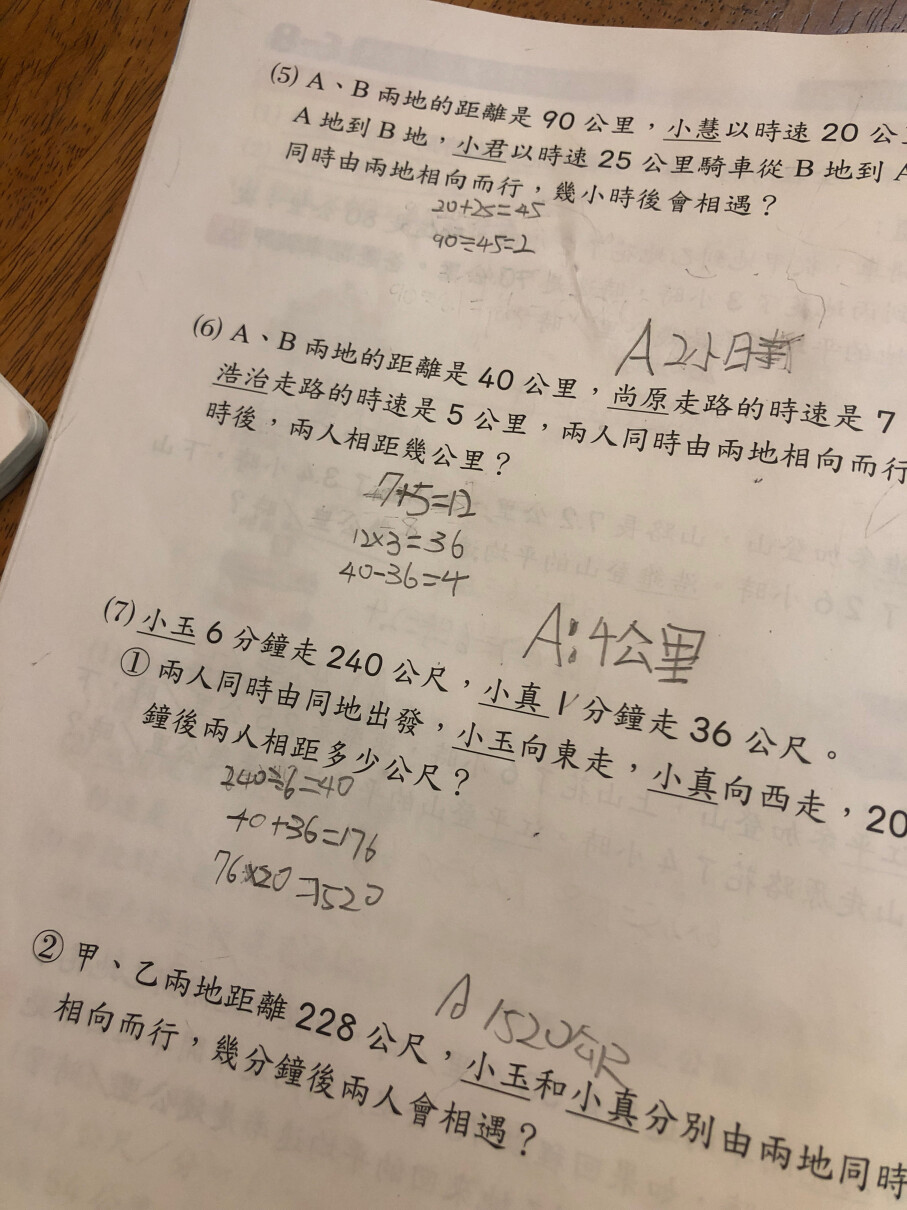 (5) A、B 兩地的距離是 90 公里，小慧以時速 20 公
A 地到 B 地，小君以時速 25 公里騎車從 B 地到 A
同時由兩地相向而行，幾小時後會相遇？
20+25=45
90÷45=2
A 2小時
(6) A、B 兩地的距離是 40 公里，尚原走路的時速是 7
浩治走路的時速是 5 公里，兩人同時由兩地相向而行
時後，兩人相距幾公里？
7+5=12
12×3=36
40-36=4
A:4公里
(7) 小玉 6 分鐘走 240 公尺，小真 1 分鐘走 36 公尺。
① 兩人同時由同地出發，小玉向東走，小真向西走，20
鐘後兩人相距多少公尺？
240÷6=40
40+36=176
76×20=1520
A 1520公尺
② 甲、乙兩地距離 228 公尺，小玉和小真分別由兩地同時
相向而行，幾分鐘後兩人會相遇？